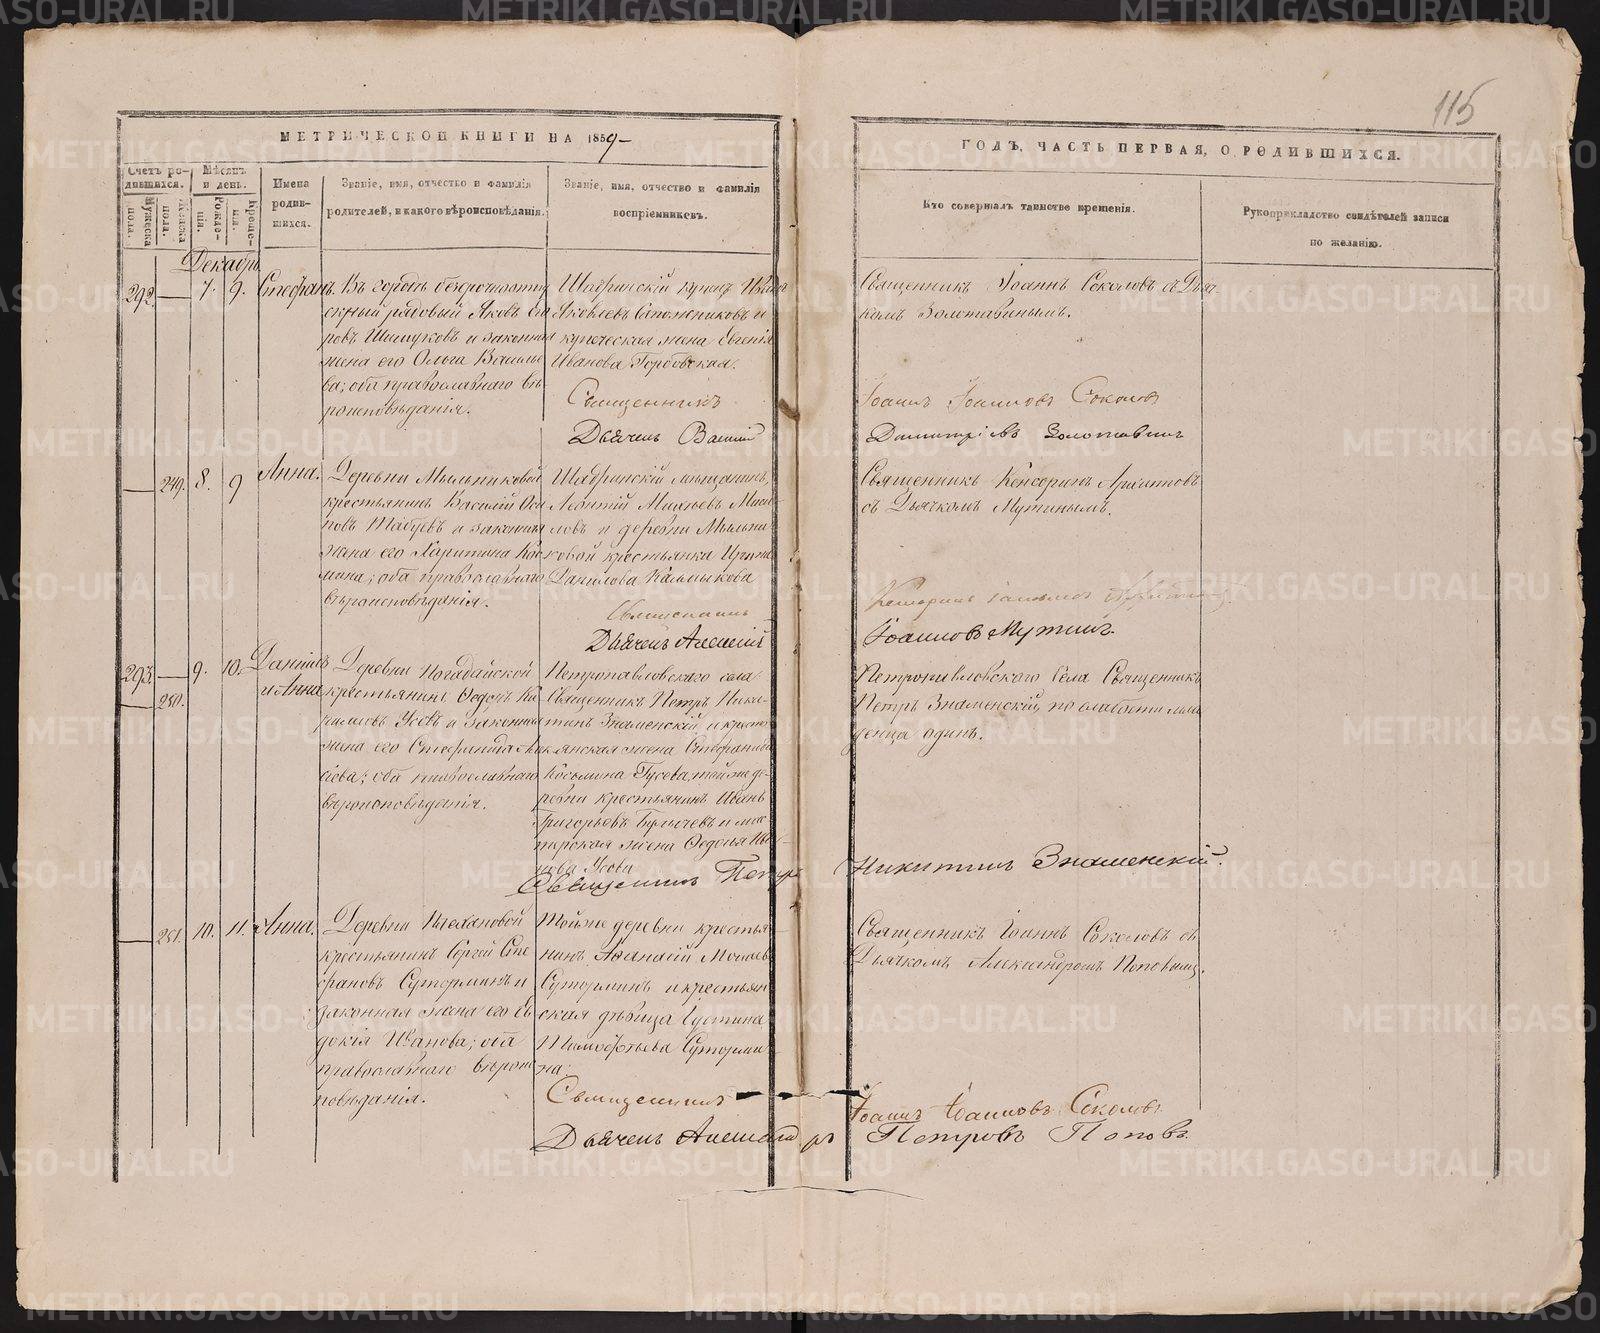 115
МЕТРИЧЕСКОЙ КНИГИ НА 1859
ГОДЪ, ЧАСТЬ ПЕРВАЯ, О РОДИВШИХСЯ.
Счетъ ро-
дившихся.
Мужеска
пола.
Женска
пола.
Мѣсяцъ
и день.
Рожде-
нія.
Креще-
нія.
Имена
родив-
шихся.
Званіе, имя, отчество и фамилія
родителей, и какого вѣроисповѣданія.
Званіе, имя, отчество и фамилія
воспріемниковъ.
Кто совершалъ таинство крещенія.
Рукоприкладство свидѣтелей записи
по желанію.
Декабрь
292. — 7. 9. Стефанъ.
рядовый Яковъ
и законная
жена его Ольга Василье
ва; оба православнаго вѣ-
роисповѣданія.
Шадринскій купецъ
Яковлевъ Сапожниковъ и
купеческая жена Евгенія
Иванова
Священникъ
Дьячекъ
Священникъ Іоаннъ Соколовъ съ Дьяч-
комъ Золотавинымъ.
Іоаннъ Іоанновъ Соколовъ
Золотавинъ
— 249. 8. 9 Анна.
Деревни Мыльниковой
крестьянинъ Василій Оси
повъ и законная
жена его Харитина Кос
мина; оба православнаго
вѣроисповѣданія.
Шадринскій мѣщанинъ
Леонтій
ловъ и деревни Мыльни
ковой крестьянка
Данилова Калмыкова
Священникъ
Дьячекъ Алексій
Священникъ Кенсоринъ
съ Дьячкомъ Мутинымъ.
Іоанновъ Мутинъ.
293. — 9. 10. Даніилъ
— 250. и Анна
Деревни
крестьянинъ Ѳедотъ Ки
рилловъ Усовъ и законная
жена его Стефанида
оба православнаго
вѣроисповѣданія.
Петропавловскаго села
Священникъ Петръ Ники-
тинъ Знаменскій и кресть
янская жена Стефанида
Косьмина Гусева, той же де-
ревни крестьянинъ Иванъ
Григорьевъ
жена Ѳедосья Ива
нова Усова
Священникъ Петръ
Петропавловскаго Села Священникъ
Петръ Знаменскій, по слабости мла
денца одинъ.
Никитинъ Знаменскій.
— 251. 10. 11. Анна.
Деревни
крестьянинъ Сергій Сте
фановъ Суторминъ и
законная жена его Ев
докія Иванова; оба
православнаго вѣроис
повѣданія.
Той же деревни крестья
нинъ Аѳанасій
Суторминъ и крестьян
ская дѣвица Іустина
Тимоѳеева Сутормі
на.
Священникъ
Дьячекъ Александръ
Священникъ Іоаннъ Соколовъ съ
Дьячкомъ Александромъ Поповымъ.
Іоаннъ Іоанновъ Соколовъ
Петровъ Поповъ.
METRIKI.GASO-URAL.RU